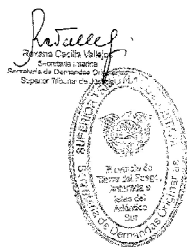 Roxana Cecilia Vallejo
Secretaria Interina
Secretaría de Demandas Originarias
Superior Tribunal de Justicia
SUPERIOR
Provincia de
Tierra del Fuego,
Antártida e
Islas del
Atlántico
Sur
Secretaría de Demandas Originarias